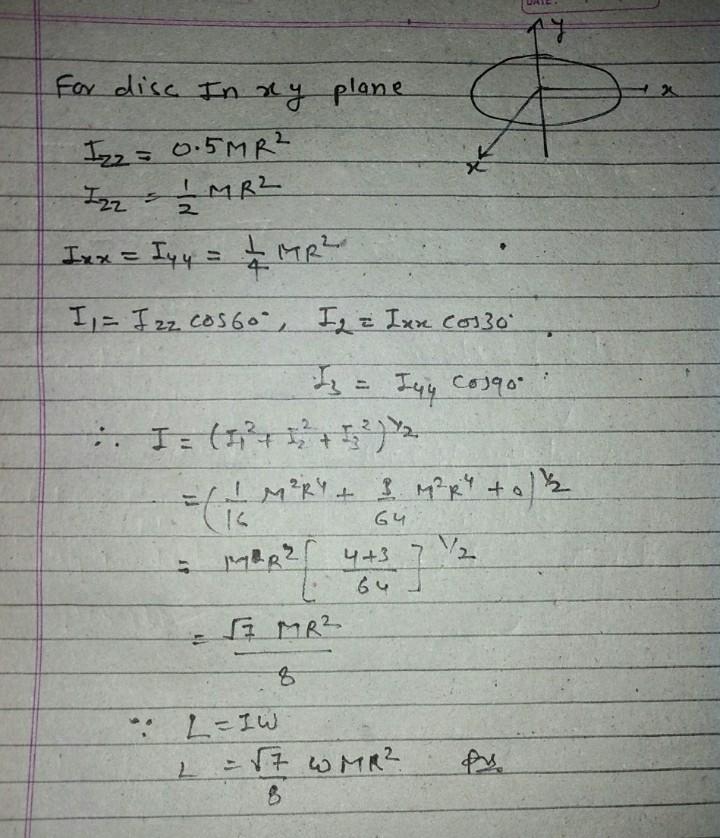 DATE:
y
For disc In xy plane
x
x
I₂₂ = 0.5MR²
I₂₂ = 1/2 MR²
Ixx = Iyy = 1/4 MR²
I₁ = I₂₂ cos60°, I₂ = Ixx cos30°
I₃ = Iyy cos90°
∴ I = (I₁² + I₂² + I₃²)^1/2
= (1/16 M²R⁴ + 3/64 M²R⁴ + 0)^1/2
= MR² [4+3/64]^1/2
= √7 MR²/8
∵ L = Iω
L = √7/8 ω MR² Ans.